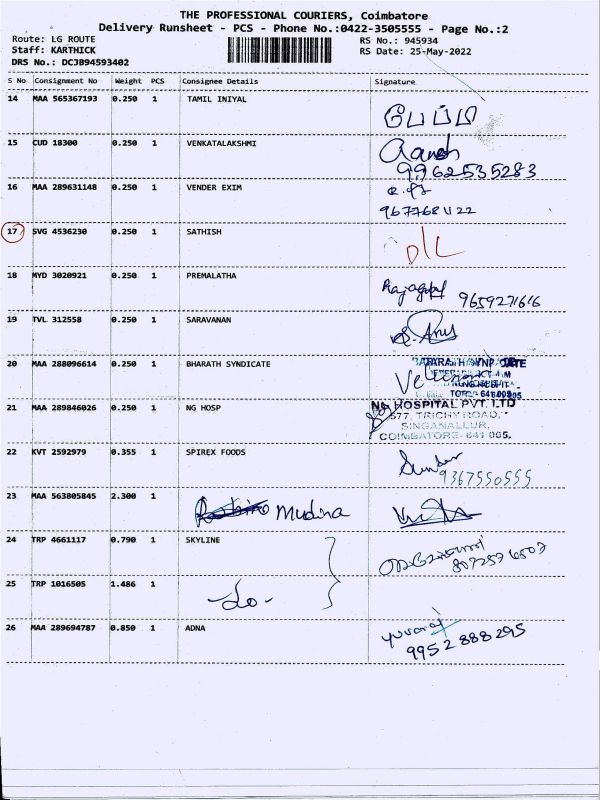 THE PROFESSIONAL COURIERS, Coimbatore
Delivery Runsheet - PCS - Phone No.:0422-3505555 - Page No.:2
Route: LG ROUTE RS No.: 945934
Staff: KARTHICK RS Date: 25-May-2022
DRS No.: DCJB94593402
S No Consignment No Weight PCS Consignee Details Signature
14 MAA 565367193 0.250 1 TAMIL INIYAL
15 CUD 18300 0.250 1 VENKATALAKSHMI
9962535283
16 MAA 289631148 0.250 1 VENDER EXIM
17 SVG 4536230 0.250 1 SATHISH D/L
18 MYD 3020921 0.250 1 PREMALATHA Rajagopal 9659271616
19 TVL 312558 0.250 1 SARAVANAN
20 MAA 288096614 0.250 1 BHARATH SYNDICATE
21 MAA 289846026 0.250 1 NG HOSP NG HOSPITAL PVT. LTD
577, TRICHY ROAD,
SINGANALLUR,
COIMBATORE- 641 005.
22 KVT 2592979 0.355 1 SPIREX FOODS Sundar
9367550555
23 MAA 563805845 2.300 1 Mudra
24 TRP 4661117 0.790 1 SKYLINE
8072576507
25 TRP 1016505 1.486 1 -do-
26 MAA 289694787 0.850 1 ADNA Yuvaraj
9952888295